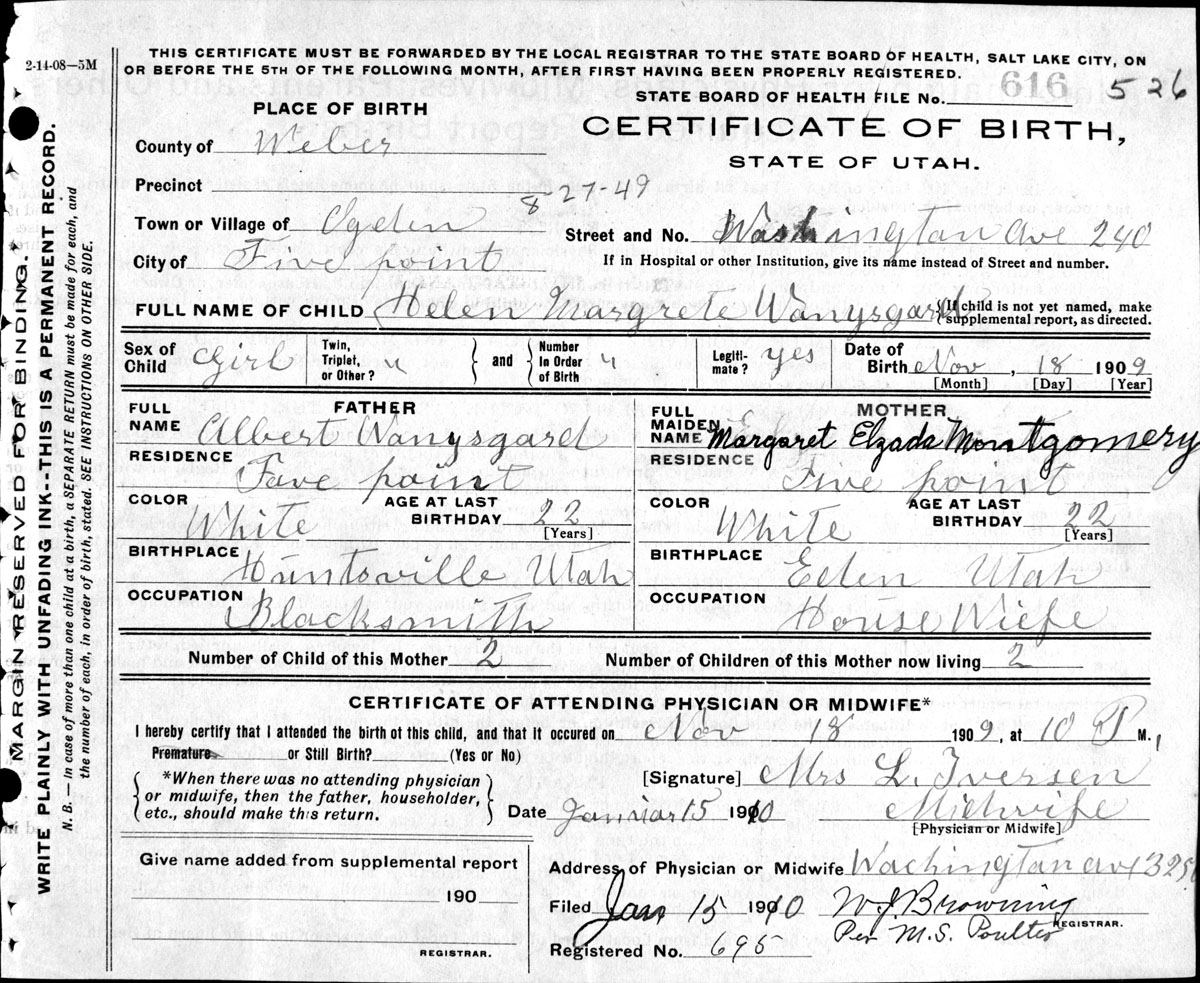 2-14-08—5M
THIS CERTIFICATE MUST BE FORWARDED BY THE LOCAL REGISTRAR TO THE STATE BOARD OF HEALTH, SALT LAKE CITY, ON
OR BEFORE THE 5TH OF THE FOLLOWING MONTH, AFTER FIRST HAVING BEEN PROPERLY REGISTERED.
STATE BOARD OF HEALTH FILE No. 616 526
PLACE OF BIRTH
CERTIFICATE OF BIRTH,
STATE OF UTAH.
County of Weber
Precinct
8-27-49
Town or Village of Ogden
Street and No. Washington ave 240
City of Five point
If in Hospital or other Institution, give its name instead of Street and number.
FULL NAME OF CHILD Helen Margrete Wanysgard
If child is not yet named, make supplemental report, as directed.
Sex of Child Girl
Twin, Triplet, or Other?
and
Number In Order of Birth
Legiti-mate? yes
Date of Birth Nov, 18 1909
[Month] [Day] [Year]
FATHER
FULL NAME Albert Wanysgard
RESIDENCE Fave point
COLOR White
AGE AT LAST BIRTHDAY 22
[Years]
BIRTHPLACE Huntsville Utah
OCCUPATION Blacksmith
MOTHER
FULL MAIDEN NAME Margaret Elzada Montgomery
RESIDENCE Five point
COLOR White
AGE AT LAST BIRTHDAY 22
[Years]
BIRTHPLACE Eden Utah
OCCUPATION House Wiefe
Number of Child of this Mother 2
Number of Children of this Mother now living 2
CERTIFICATE OF ATTENDING PHYSICIAN OR MIDWIFE*
I hereby certify that I attended the birth of this child, and that it occured on Nov 18 1909, at 10 P M.,
Premature or Still Birth? (Yes or No)
*When there was no attending physician
or midwife, then the father, householder,
etc., should make this return.
[Signature] Mrs L. Iversen
Date Januiar 15 1910
Midwife
[Physician or Midwife]
Give name added from supplemental report
190
REGISTRAR.
Address of Physician or Midwife Wachington ave
Filed Jan 15 1910
W J Browning
Per M.S. Poulter
REGISTRAR.
Registered No. 695
MARGIN RESERVED FOR BINDING.
WRITE PLAINLY WITH UNFADING INK--THIS IS A PERMANENT RECORD.
N. B.—In case of more than one child at a birth, a SEPARATE RETURN must be made for each, and
the number of each, in order of birth, stated. SEE INSTRUCTIONS ON OTHER SIDE.